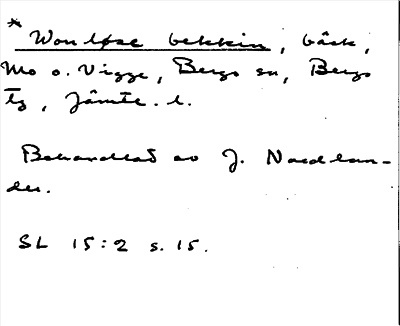 * Wonløse bekkin, bäck,
Mo o. Vigge, Bergs sn, Bergs
tg, Jämtl. l.
Behandlat av J. Nordlan-
der.
SL 15:2 s. 15.